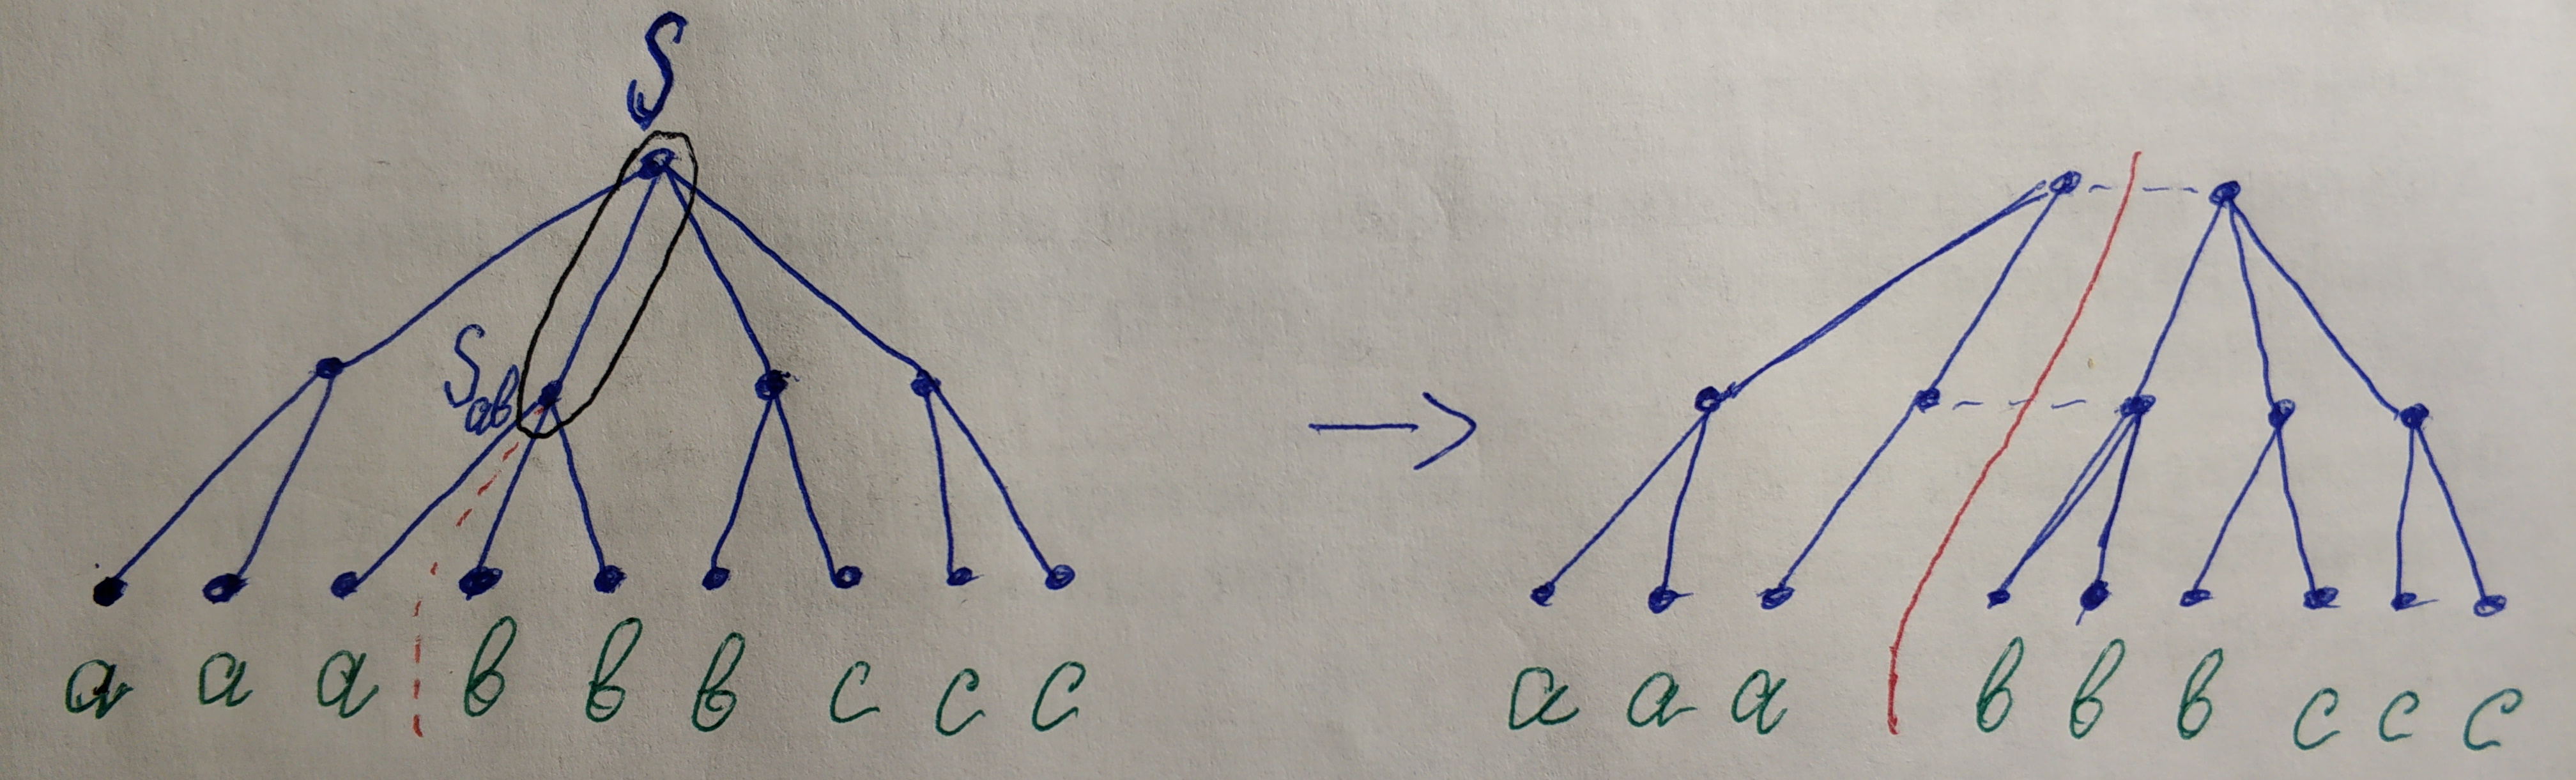 S
S_ab
a a a b b b c c c a a a b b b c c c